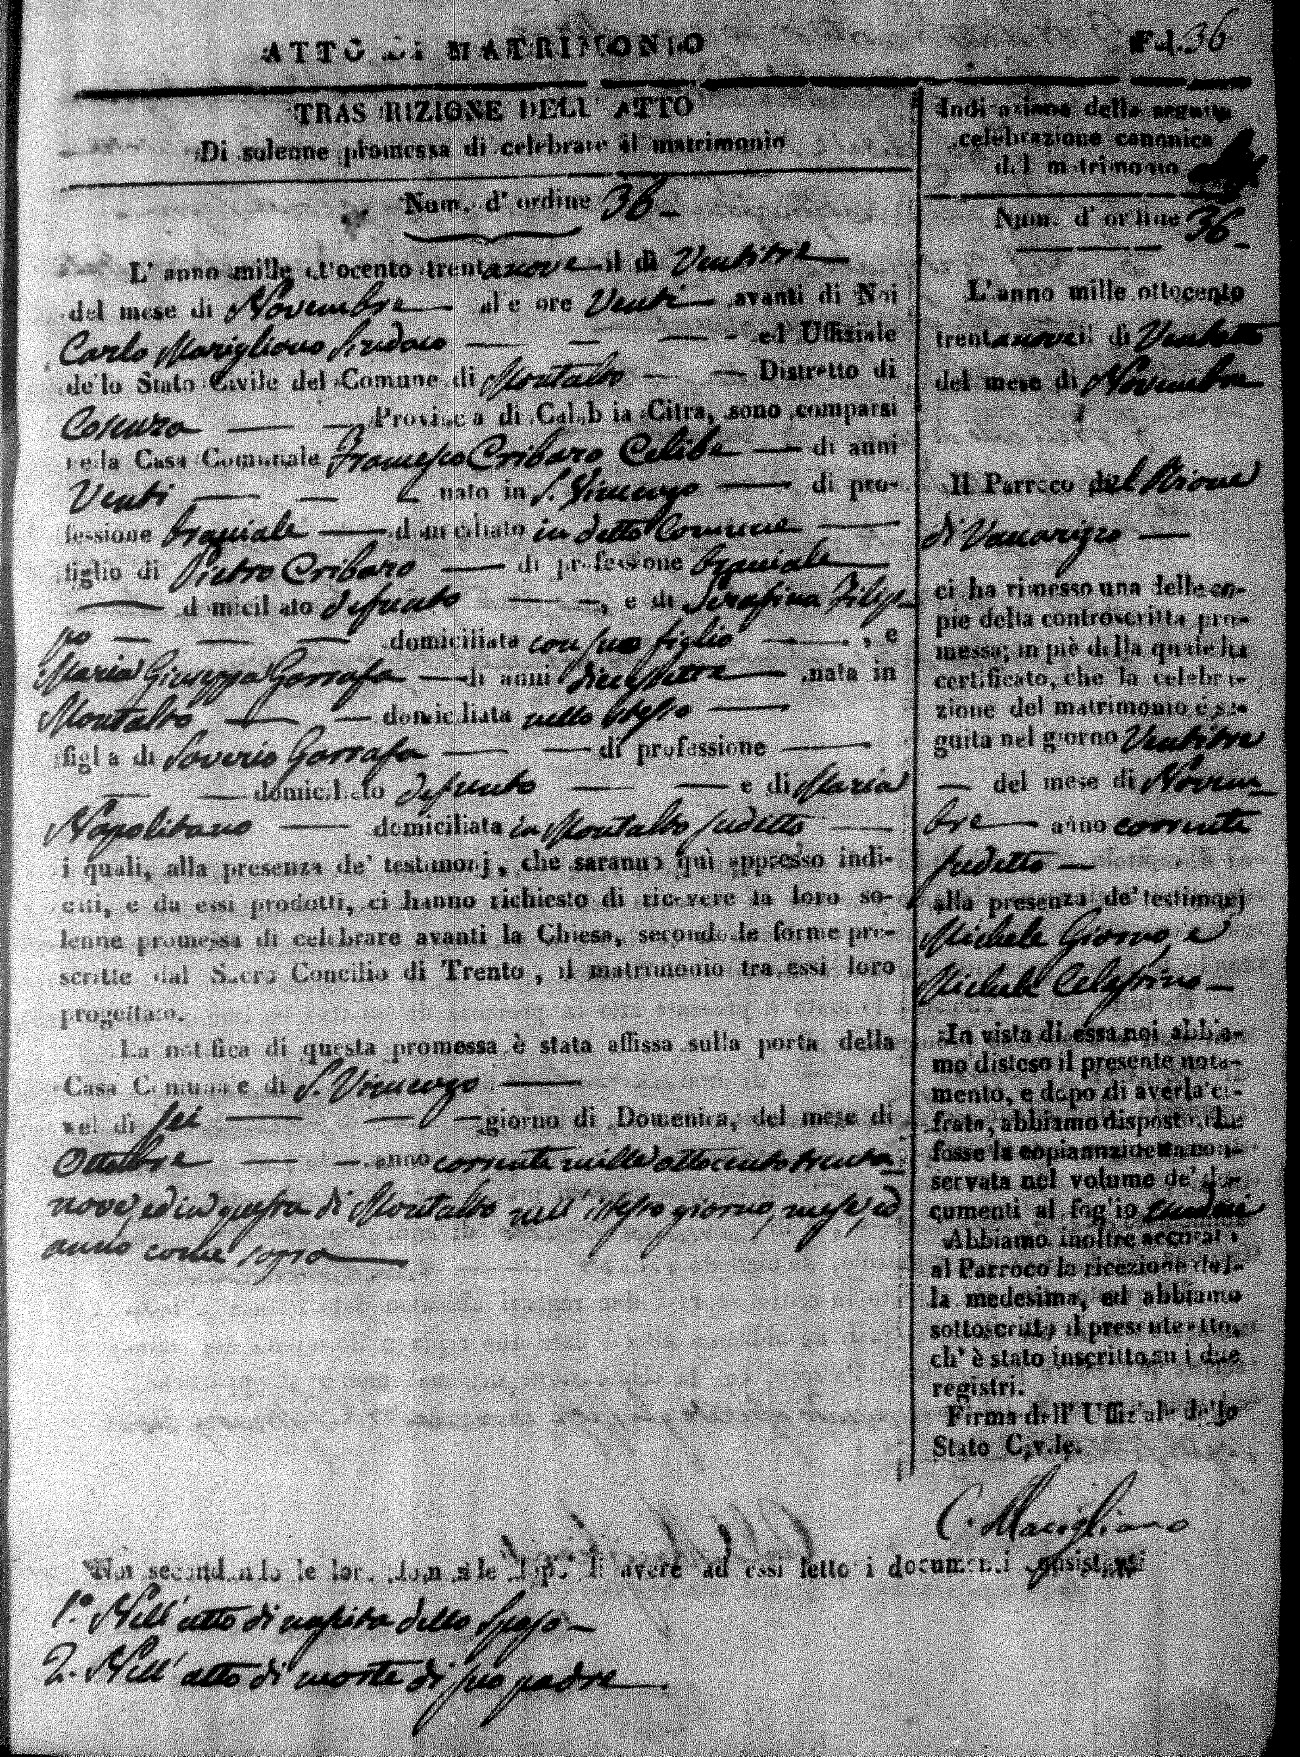 ATTO DI MATRIMONIO
Fol. 36
TRASCRIZIONE DELL' ATTO
Di solenne promessa di celebrare il matrimonio
Num. d' ordine 36
L' anno mille ottocento trentanove il dì Ventitre
del mese di Novembre alle ore Venti avanti di Noi
Carlo Marigliano Sindaco ed Uffiziale
dello Stato Civile del Comune di Montalto Distretto di
Cosenza Provincia di Calabria Citra, sono comparsi
nella Casa Comunale Francesco Cribaro Celibe di anni
Venti nato in S. Vincenzo di pro-
fessione bracciale domiciliato in detto Comune
figlio di Pietro Cribaro di professione bracciale
domiciliato defunto, e di Serafina Filip-
po domiciliata con suo figlio, e
Maria Giuseppa Garrafa di anni diecisette nata in
Montalto domiciliata nello stesso
figlia di Saverio Garrafa di professione
domiciliato defunto e di Maria
Napolitano domiciliata in Montalto sudetto
i quali, alla presenza de' testimonj, che saranno quì appresso indi-
cati, e da essi prodotti, ci hanno richiesto di ricevere la loro so-
lenne promessa di celebrare avanti la Chiesa, secondo le forme pre-
scritte dal Sacro Concilio di Trento, il matrimonio tra essi loro
progettato.
La notifica di questa promessa è stata affissa sulla porta della
Casa Comunale di S. Vincenzo
nel dì sei giorno di Domenica, del mese di
Ottobre anno corrente mille ottocento trenta
nove, ed in questa di Montalto nell' istesso giorno, mese, ed
anno come sopra
Indicazione della seguita
celebrazione canonica
del matrimonio
Num. d' ordine 36
L'anno mille ottocento
trentanove il dì Ventitre
del mese di Novembre
Il Parroco del Rione
di Vaccarizzo
ci ha rimesso una delle co-
pie della controscritta pro-
messa; in piè della quale ha
certificato, che la celebra-
zione del matrimonio è se-
guita nel giorno Ventitre
del mese di Novem-
bre anno corrente
sudetto
alla presenza de' testimonj
Michele Giorno, e
Michele Celestino
In vista di essa noi abbia-
mo disteso il presente nota-
mento, e dopo di averla ci-
frata, abbiamo disposto che
fosse la copia anzidetta con-
servata nel volume de' do-
cumenti al foglio
Abbiamo inoltre accusato
al Parroco la ricezione del-
la medesima, ed abbiamo
sottoscritto il presente atto,
ch' è stato inscritto su i due
registri.
Firma dell' Uffiziale dello
Stato Civile.
C. Marigliano
Noi secondando le loro domande dopo di avere ad essi letto i documenti consistenti
1.° Nell' atto di nascita dello Sposo
2. Nell' atto di morte di suo padre